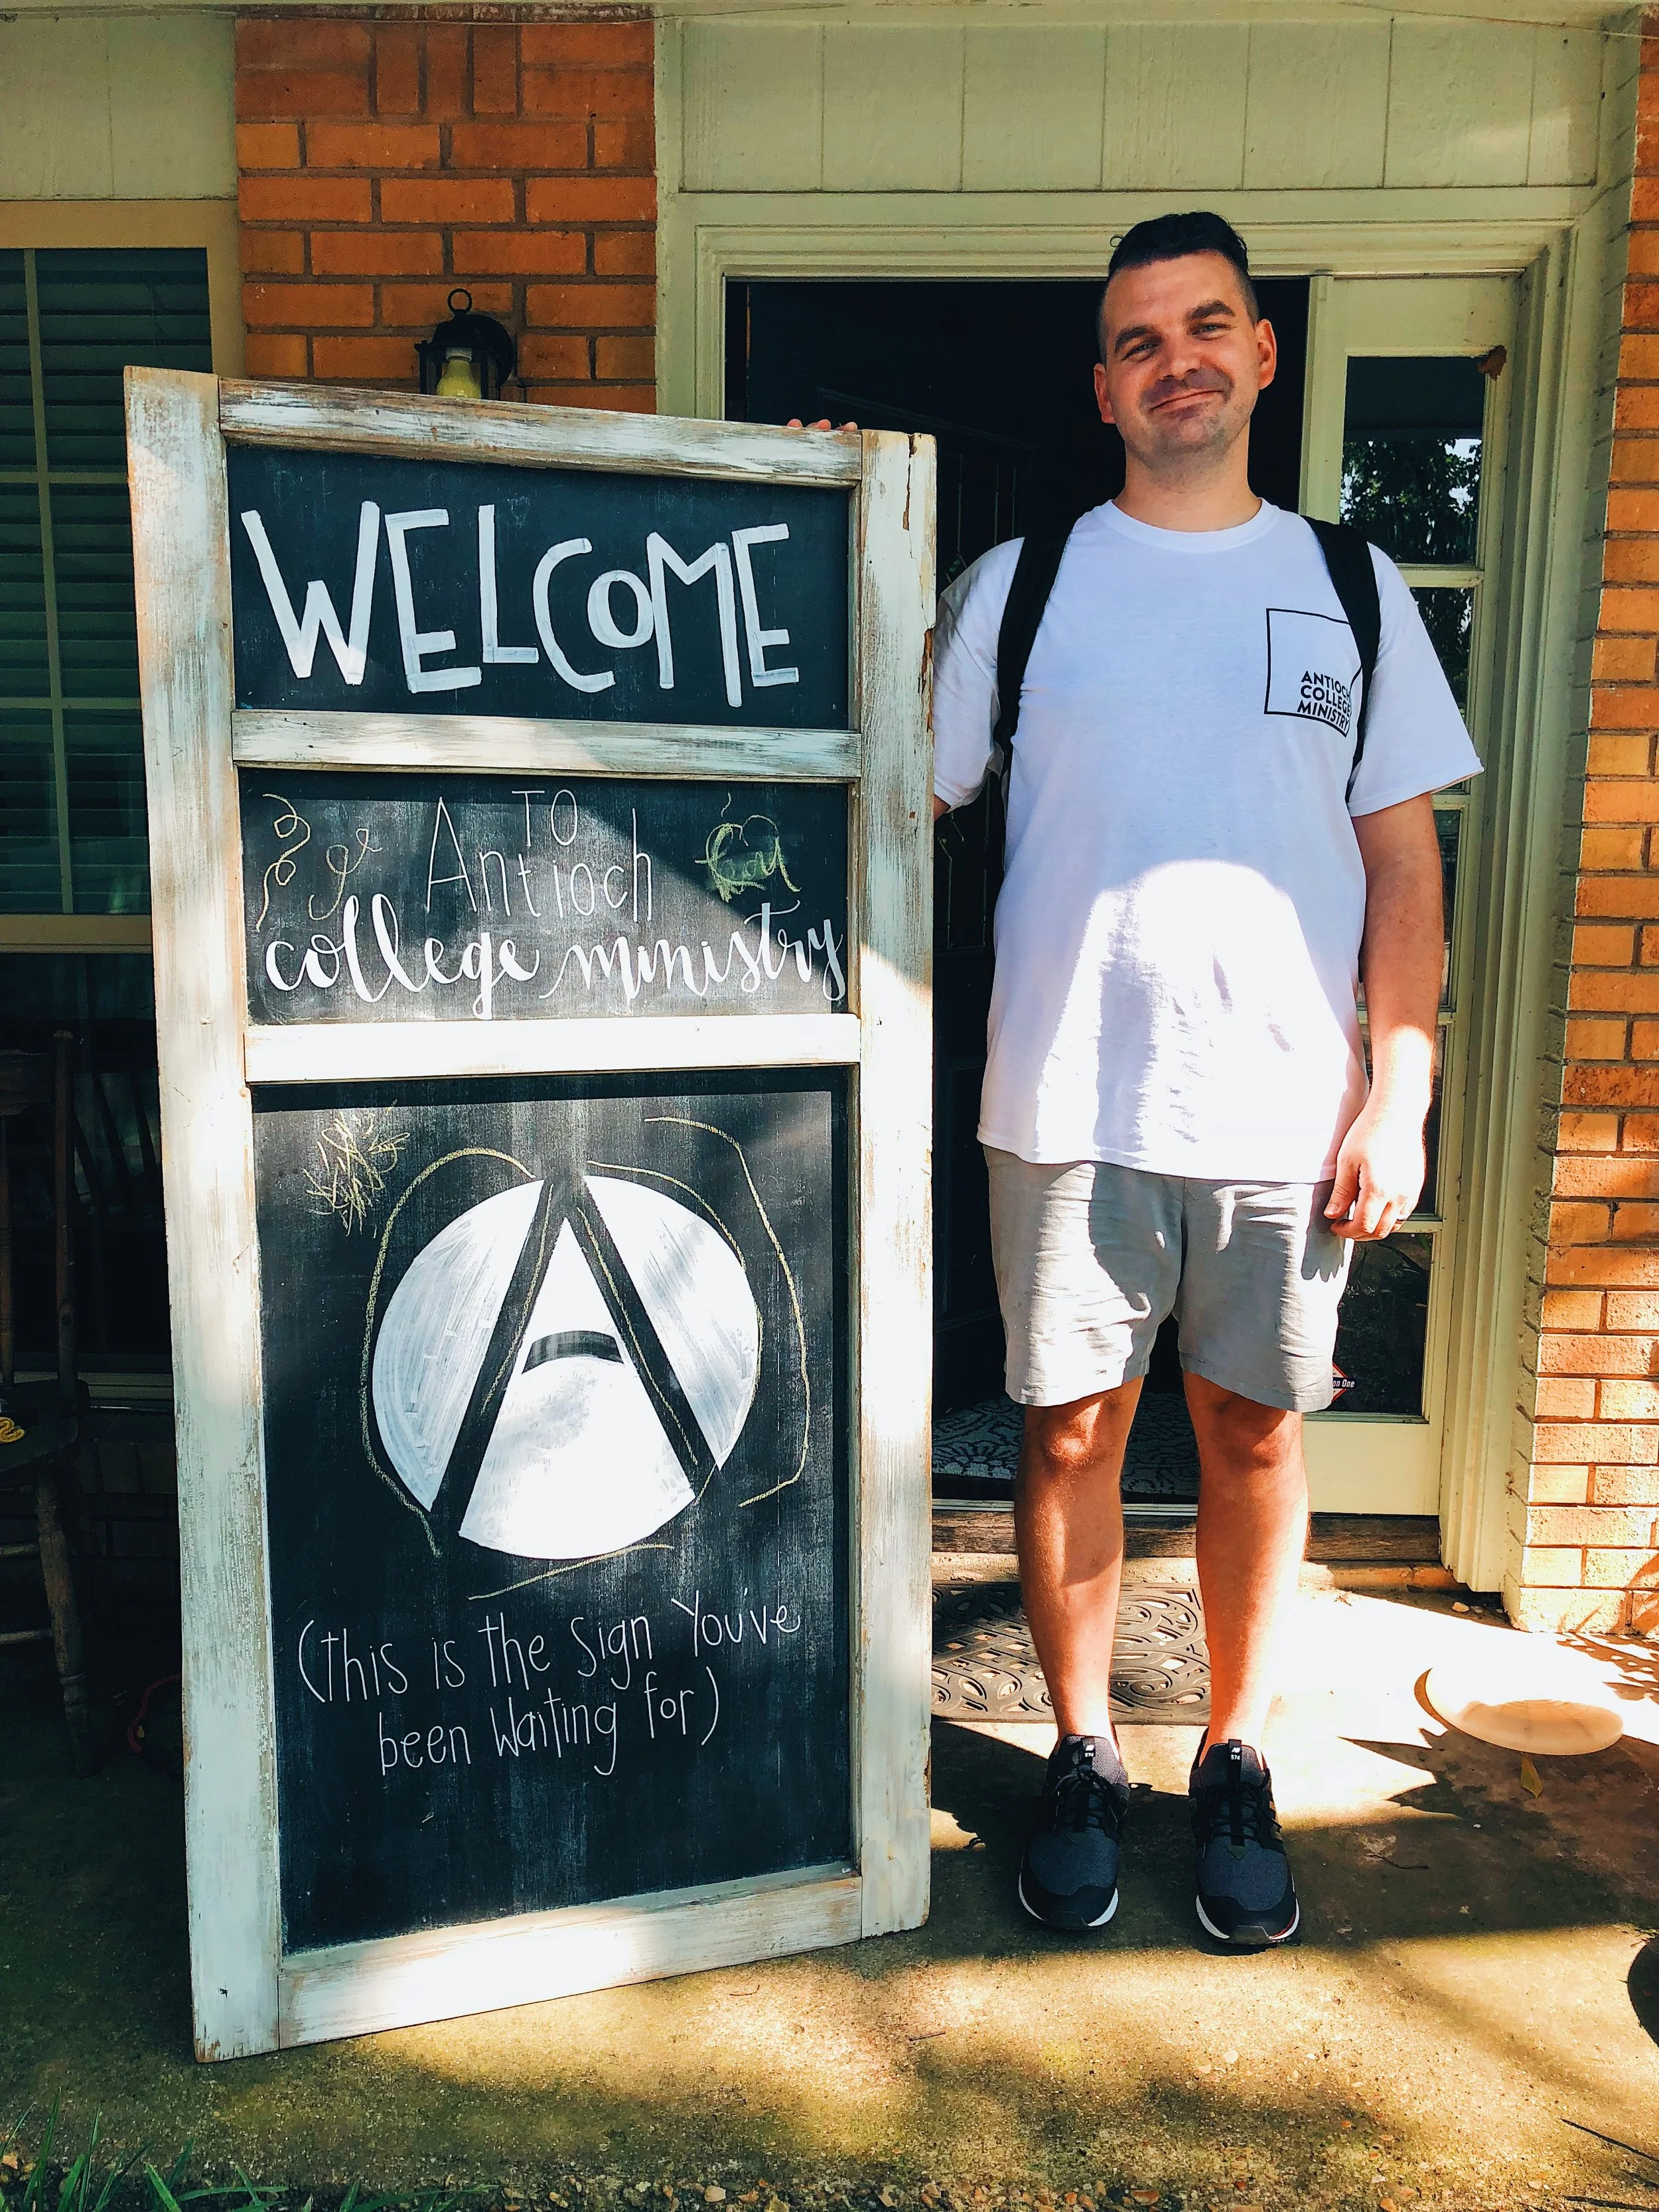 WELCOME
TO
Antioch
college ministry
(This is the sign You've
been Waiting for)
ANTIOCH
COLLEGE
MINISTRY
on One